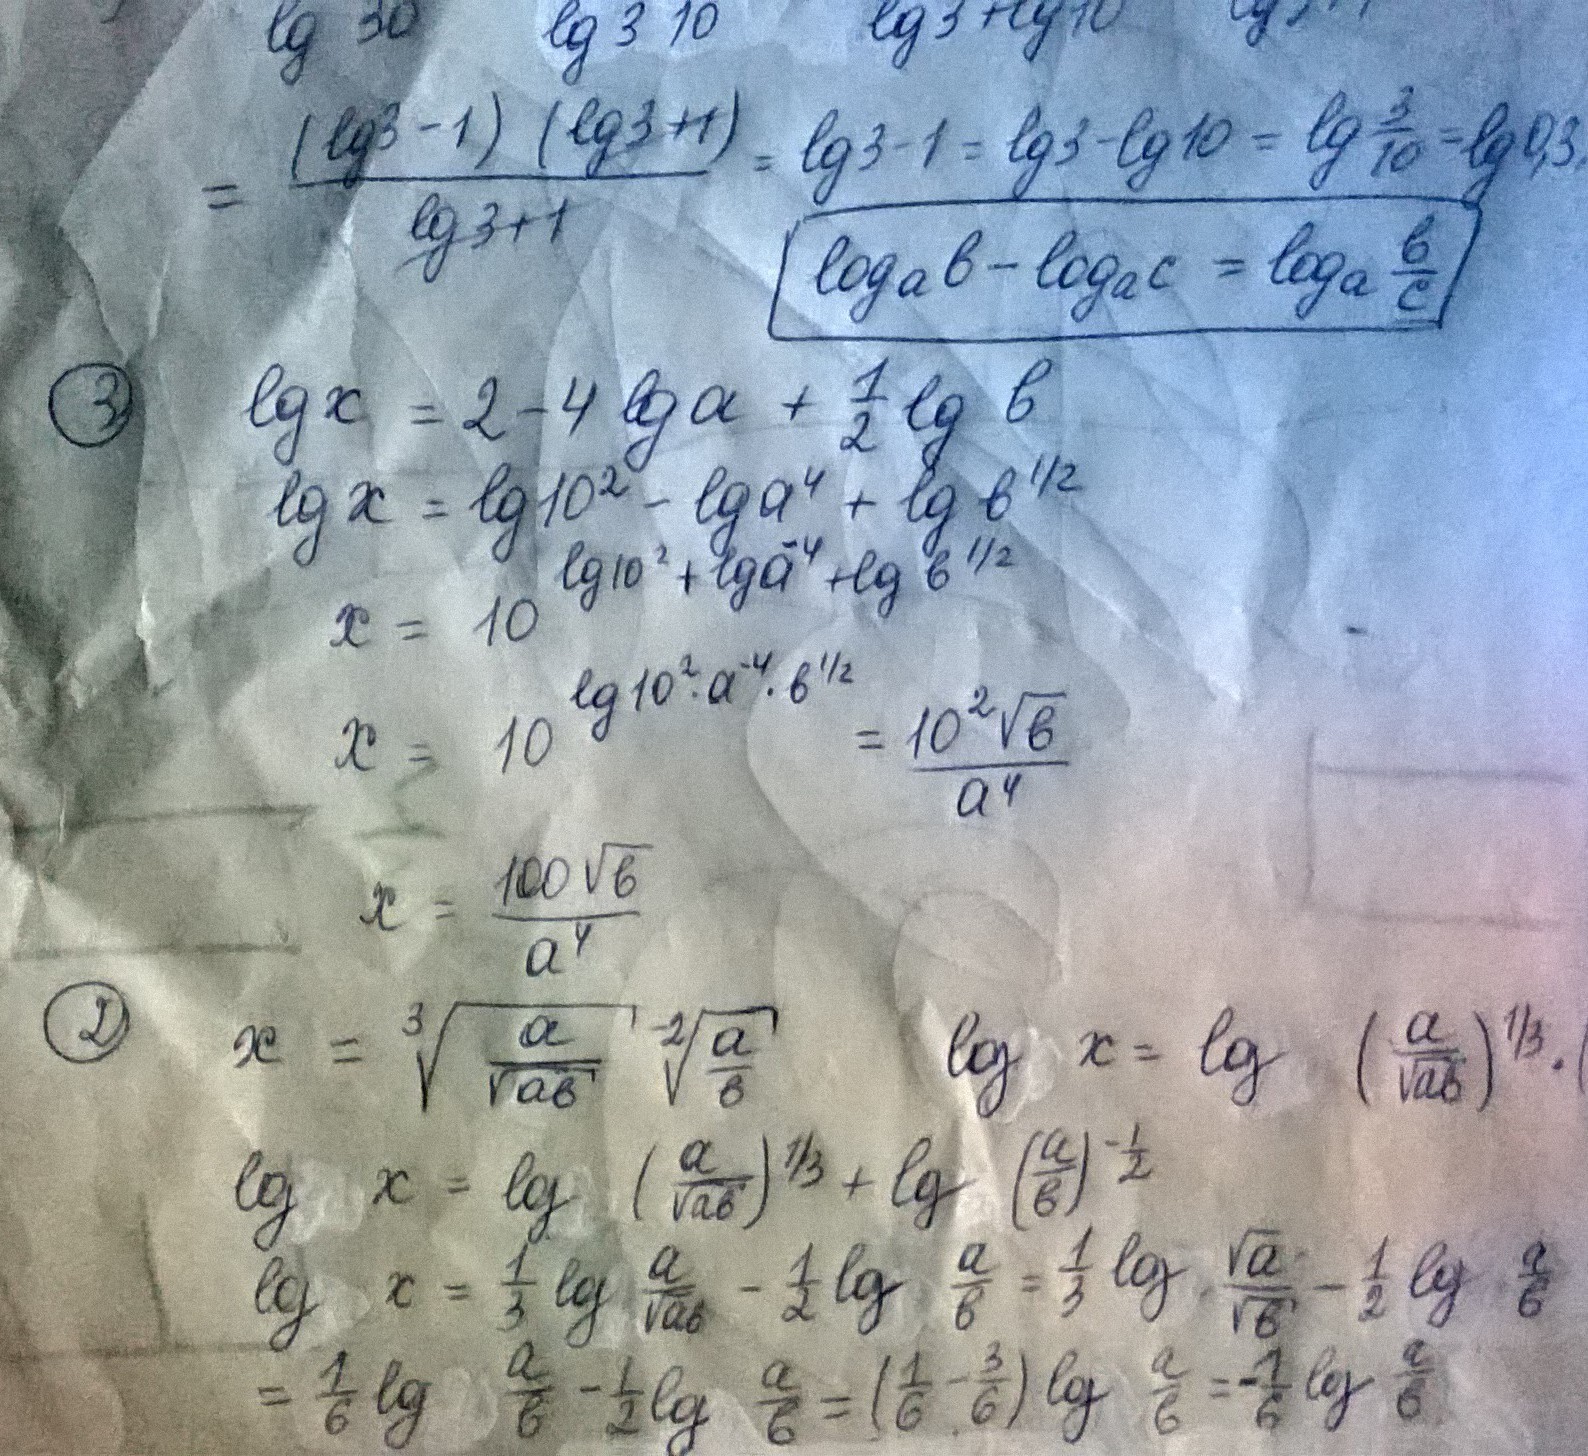 lg 30 lg 3 10 lg3+lg10
= (lg3-1) (lg3+1) / lg3+1 = lg3-1 = lg3-lg10 = lg 3/10 = lg0,3.
logₐb - logₐc = logₐ b/c
③ lgx = 2-4 lga + 1/2 lg b
lgx = lg10² - lga⁴ + lg b^1/2
x = 10^(lg10² + lga⁻⁴ + lg b^1/2)
x = 10^(lg10²·a⁻⁴·b^1/2) = 10²√b / a⁴
x = 100√b / a⁴
② x = ³√(a/√ab) ⁻²√(a/b) log x = log (a/√ab)^1/3 · (
lg x = lg (a/√ab)^1/3 + lg (a/b)^-1/2
lg x = 1/3 lg a/√ab - 1/2 lg a/b = 1/3 lg √a/√b - 1/2 lg a/b
= 1/6 lg a/b - 1/2 lg a/b = (1/6 - 3/6) lg a/b = -1/6 lg a/b